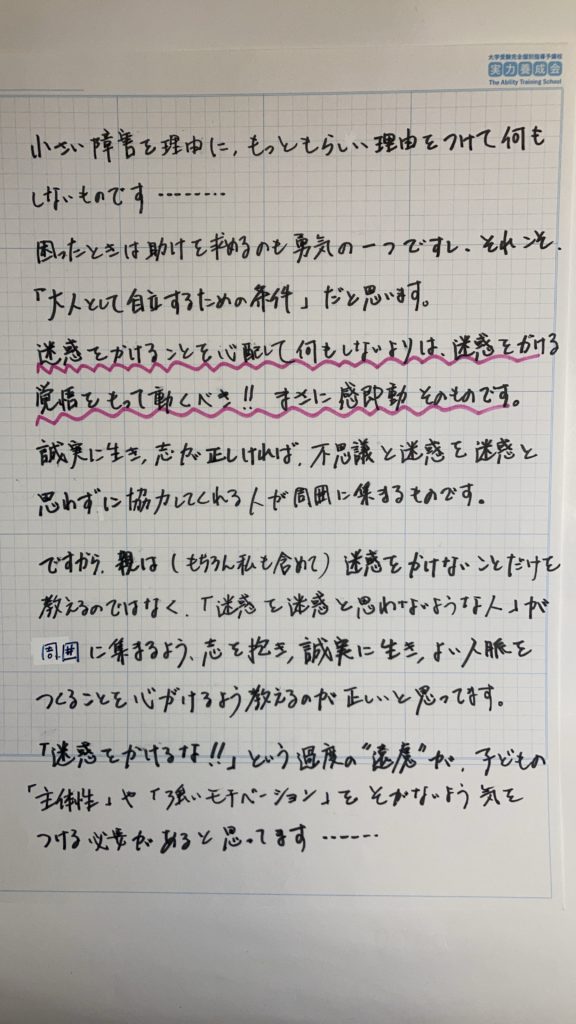 大学受験完全個別指導予備校
実力養成会
The Ability Training School
小さい障害を理由に、もっともらしい理由をつけて何も
しないものです………
困ったときは助けを求めるのも勇気の一つですし、それこそ、
「大人として自立するための条件」だと思います。
迷惑をかけることを心配して何もしないよりは、迷惑をかける
覚悟をもって動くべき!! まさに感即動そのものです。
誠実に生き、志が正しければ、不思議と迷惑を迷惑と
思わずに協力してくれる人が周囲に集まるものです。
ですから、親は(もちろん私も含めて)迷惑をかけないことだけを
教えるのではなく、「迷惑を迷惑と思わないような人」が
周囲に集まるよう、志を抱き、誠実に生き、よい人脈を
つくることを心がけるよう教えるのが正しいと思ってます。
「迷惑をかけるな!!」という過度の"遠慮"が、子どもの
「主体性」や「強いモチベーション」をそがないよう気を
つける必要があると思ってます……